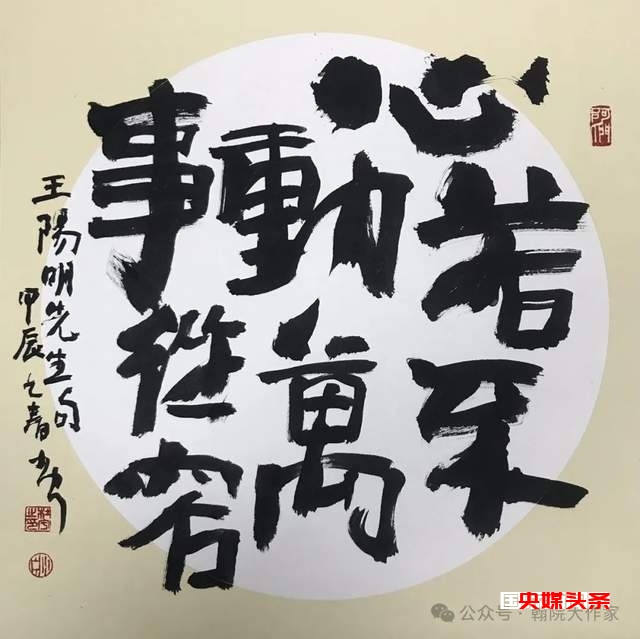 心若不
動萬
事從容
王陽明先生句
甲辰之春
国央媒头条
公众号·翰院大作家